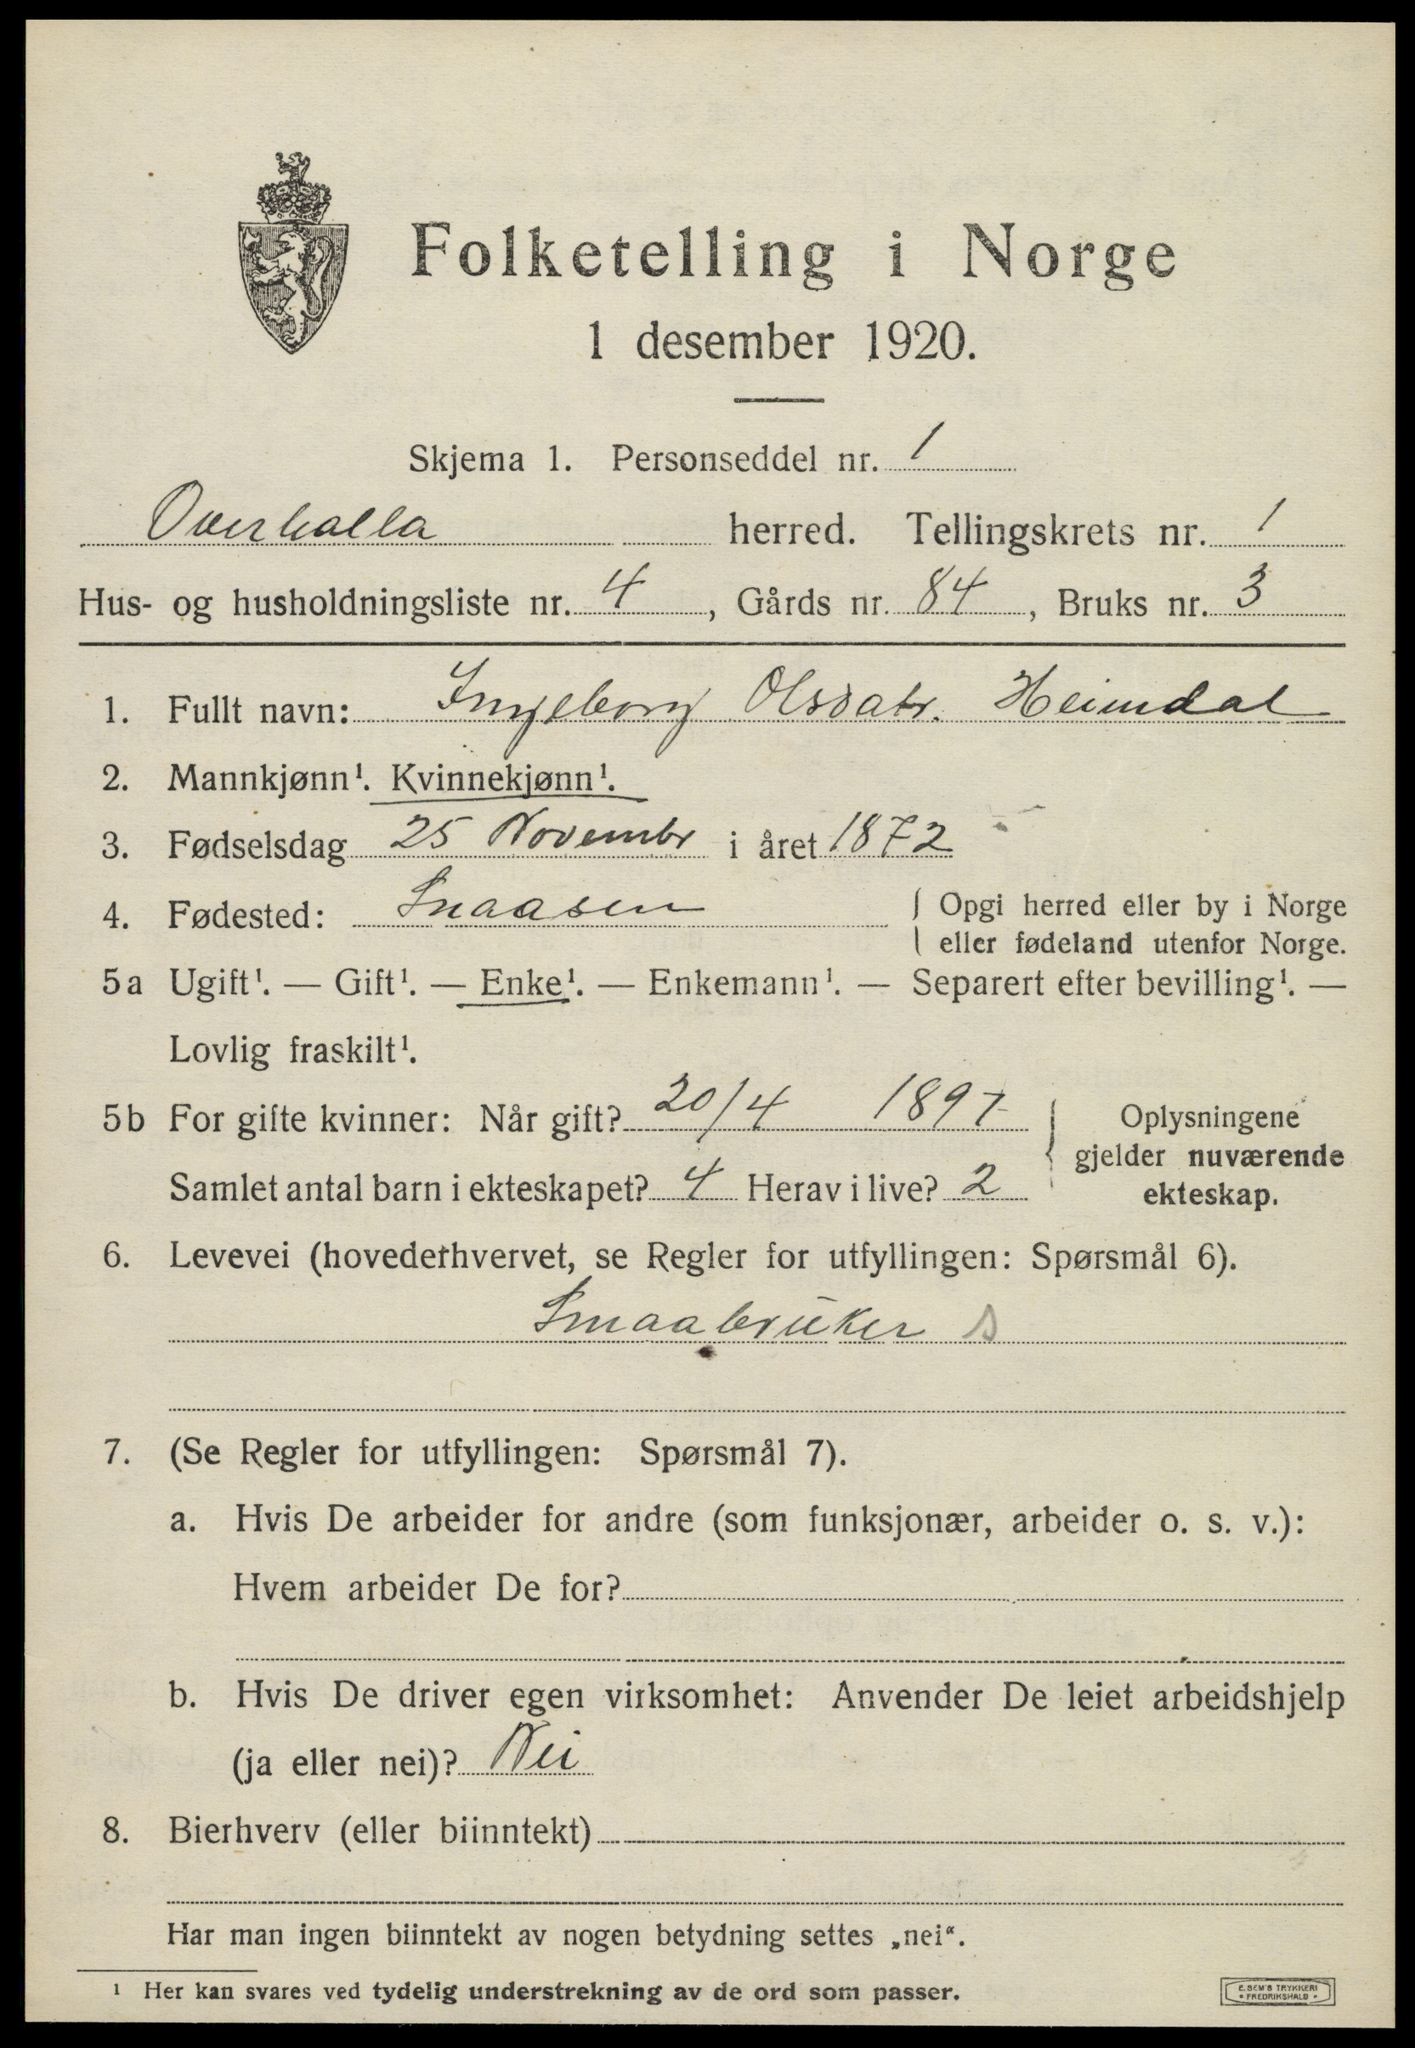 Folketelling i Norge
1 desember 1920.
Skjema 1. Personseddel nr. 1
Overhalla herred. Tellingskrets nr. 1
Hus- og husholdningsliste nr. 4, Gårds nr. 84, Bruks nr. 3
1. Fullt navn: Ingeborg Olsdatr. Heimdal
2. Mannkjønn¹. Kvinnekjønn¹.
3. Fødselsdag 25 Novembr i året 1872
4. Fødested: Snaasen { Opgi herred eller by i Norge
eller fødeland utenfor Norge.
5a Ugift¹. — Gift¹. — Enke¹. — Enkemann¹. — Separert efter bevilling¹. —
Lovlig fraskilt¹.
5b For gifte kvinner: Når gift? 20/4 1897 { Oplysningene
gjelder nuværende
Samlet antal barn i ekteskapet? 4 Herav i live? 2 ekteskap.
6. Levevei (hovederhvervet, se Regler for utfyllingen: Spørsmål 6).
Smaabruker s
7. (Se Regler for utfyllingen: Spørsmål 7).
a. Hvis De arbeider for andre (som funksjonær, arbeider o. s. v.):
Hvem arbeider De for?
b. Hvis De driver egen virksomhet: Anvender De leiet arbeidshjelp
(ja eller nei)? Nei
8. Bierhverv (eller biinntekt)
Har man ingen biinntekt av nogen betydning settes „nei“.
¹ Her kan svares ved tydelig understrekning av de ord som passer.
E. SEM'S TRYKKERI
• FREDRIKSHALD •